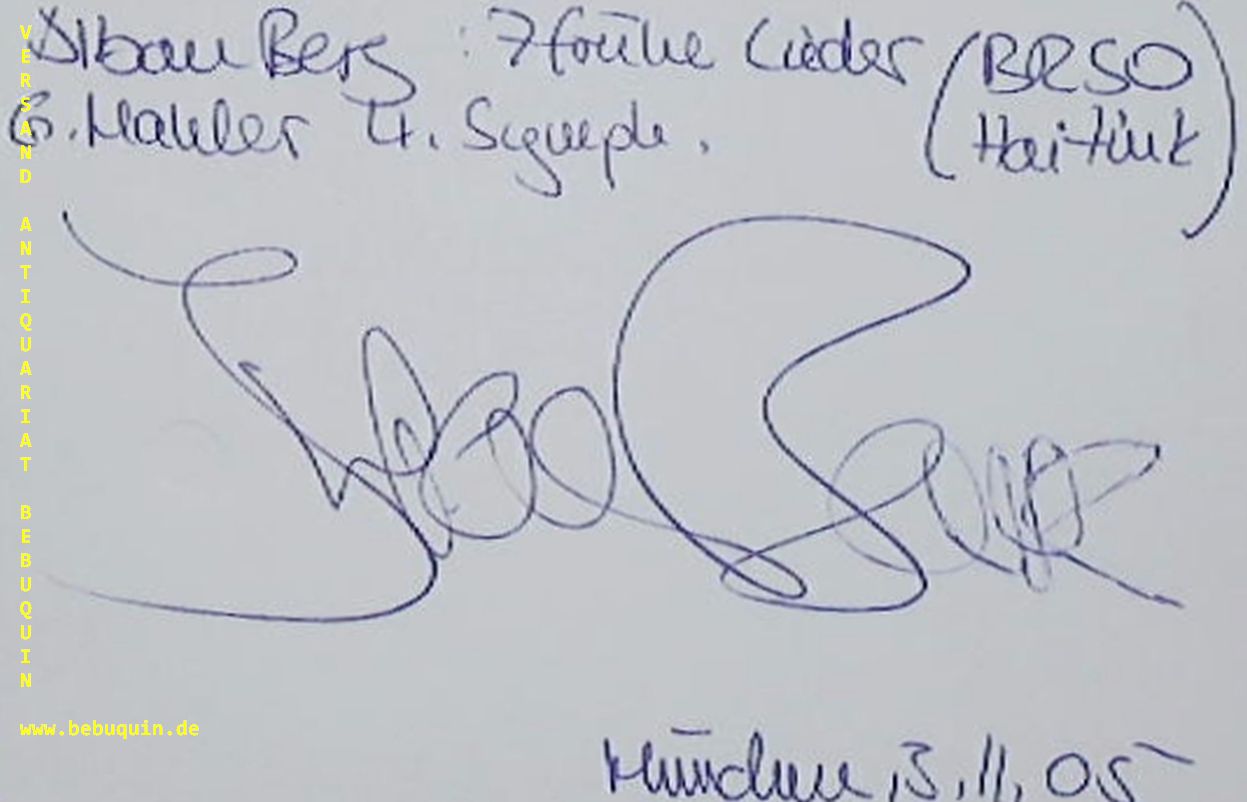 Alban Berg : 7 frühe Lieder (BRSO
G. Mahler 4. Symph. Haitink)
München, 3.11.05
VERSAND ANTIQUARIAT BEBUQUIN
www.bebuquin.de